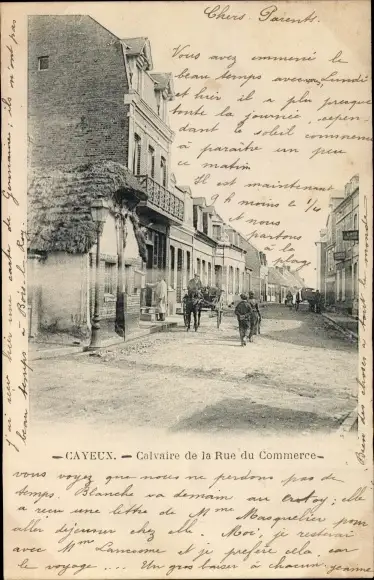 Chers Parents.
Vous avez emmené le
beau temps avec vous Lundi
et hier il a plu presque
toute la journée, cepen-
dant le soleil commence
à paraître un peu
ce matin.
Il est maintenant
9 h moins 1/4
et nous
partons
à la
plage
— CAYEUX. — Calvaire de la Rue du Commerce —
vous voyez que nous ne perdons pas de
temps. Blanche va demain au Crotoy; elle
a reçu une lettre de Mme Masquelier pour
aller déjeuner chez elle. Moi, je resterai
avec Mm et je préfère cela, car
le voyage .... Un gros baiser à chacun Jeanne
J'ai reçu hier une carte de Germaine, ils n'ont pas
beau temps à Bois-le-Roy
Bien des choses à tous